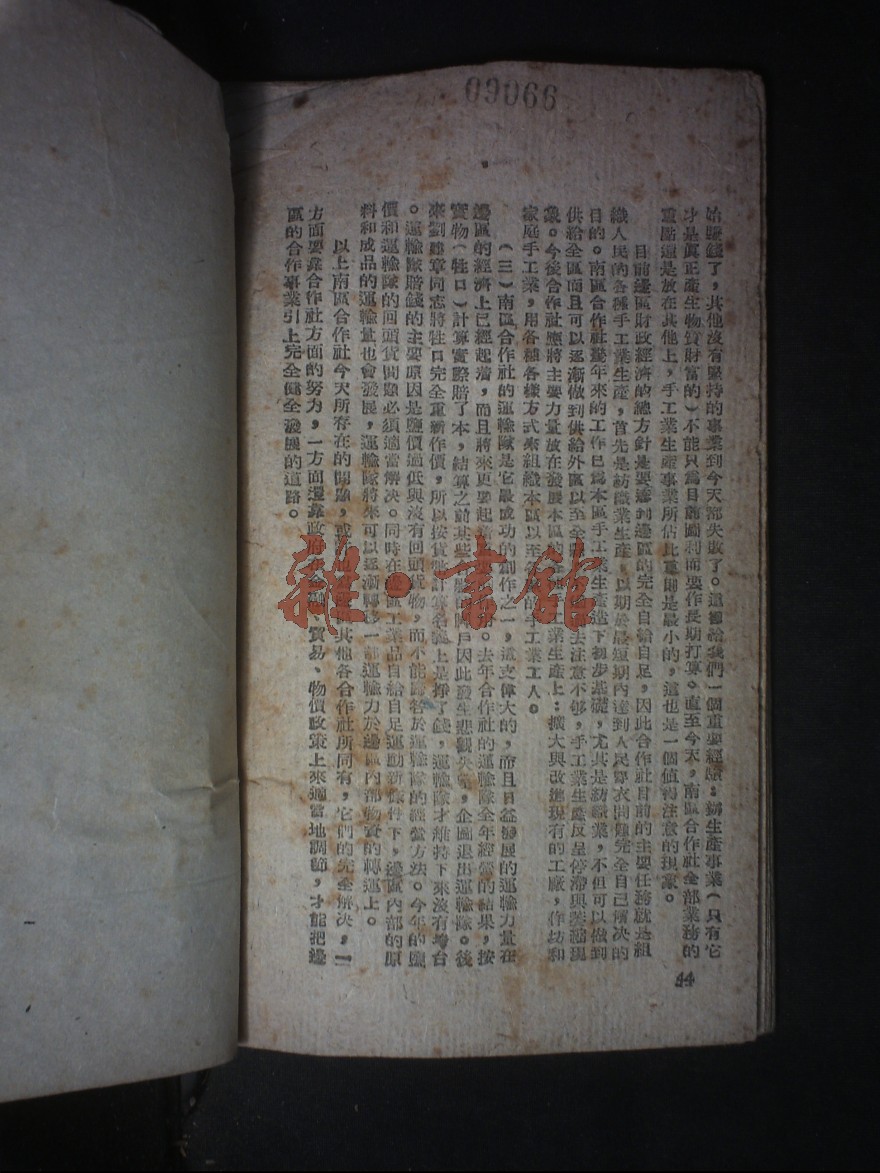 09066
始賺錢了，其他沒有堅持的事業到今天都失敗了。這都給我們一個重要經驗：辦生產事業（只有它
才是眞正產生物質財富的）不能只爲目前圖利而要作長期打算。直至今天，南區合作社全部業務的
重點還是放在其他上，手工業生產事業所佔比重尙是最小的，這也是一個值得注意的現象。
目前邊區財政經濟的總方針是要達到邊區的完全自給自足，因此合作社目前的主要任務就是組
織人民的各種手工業生產，首先是紡織業生產，以期於最短期內達到人民穿衣問題完全自己解決的
目的。南區合作社歷年來的工作已爲本區手工業生產造下初步基礎，尤其是紡織業，不但可以做到
供給全區而且可以逐漸做到供給外區以至全去注意不够，手工業生產反呈停滯與萎縮現
象。今後合作社應將主要力量放在發展本區的工業生產上：擴大與改進現有的工廠，作坊和
家庭手工業，用各種各樣方式來組織本區以至各的手工業工人。
（三）南區合作社的運輸隊是它最成功的創作之一，這支偉大的，而且日益發展的運輸力量在
邊區的經濟上已經起着，而且將來更要起着。去年合作社的運輸隊全年經營的結果，按
實物（牲口）計算實際賠了本，結算之前某些戶因此發生悲觀失望，企圖退出運輸隊。後
來劉建章同志將牲口完全重新作價，所以按貨幣計算名義上是掙了錢，運輸隊才維持下來沒有垮台
。運輸隊賠錢的主要原因是鹽價過低與沒有回頭貨物，而不能歸咎於運輸隊的經營方法。今年的鹽
價和運輸隊的回頭貨問題必須適當解決。同時在邊區工業品自給自足運動新條件下，邊區內部的原
料和成品的運輸量也會發展，運輸隊將來可以逐漸轉移一部運輸力於邊區內部物資的轉運上。
以上南區合作社今天所存在的問題，或其他各合作社所同有，它們的完全解決，一
方面要靠合作社方面的努力，一方面還靠政府在金融、貿易、物價政策上來適當地調節，才能把邊
區的合作事業引上完全健全發展的道路。
44
雜·書館